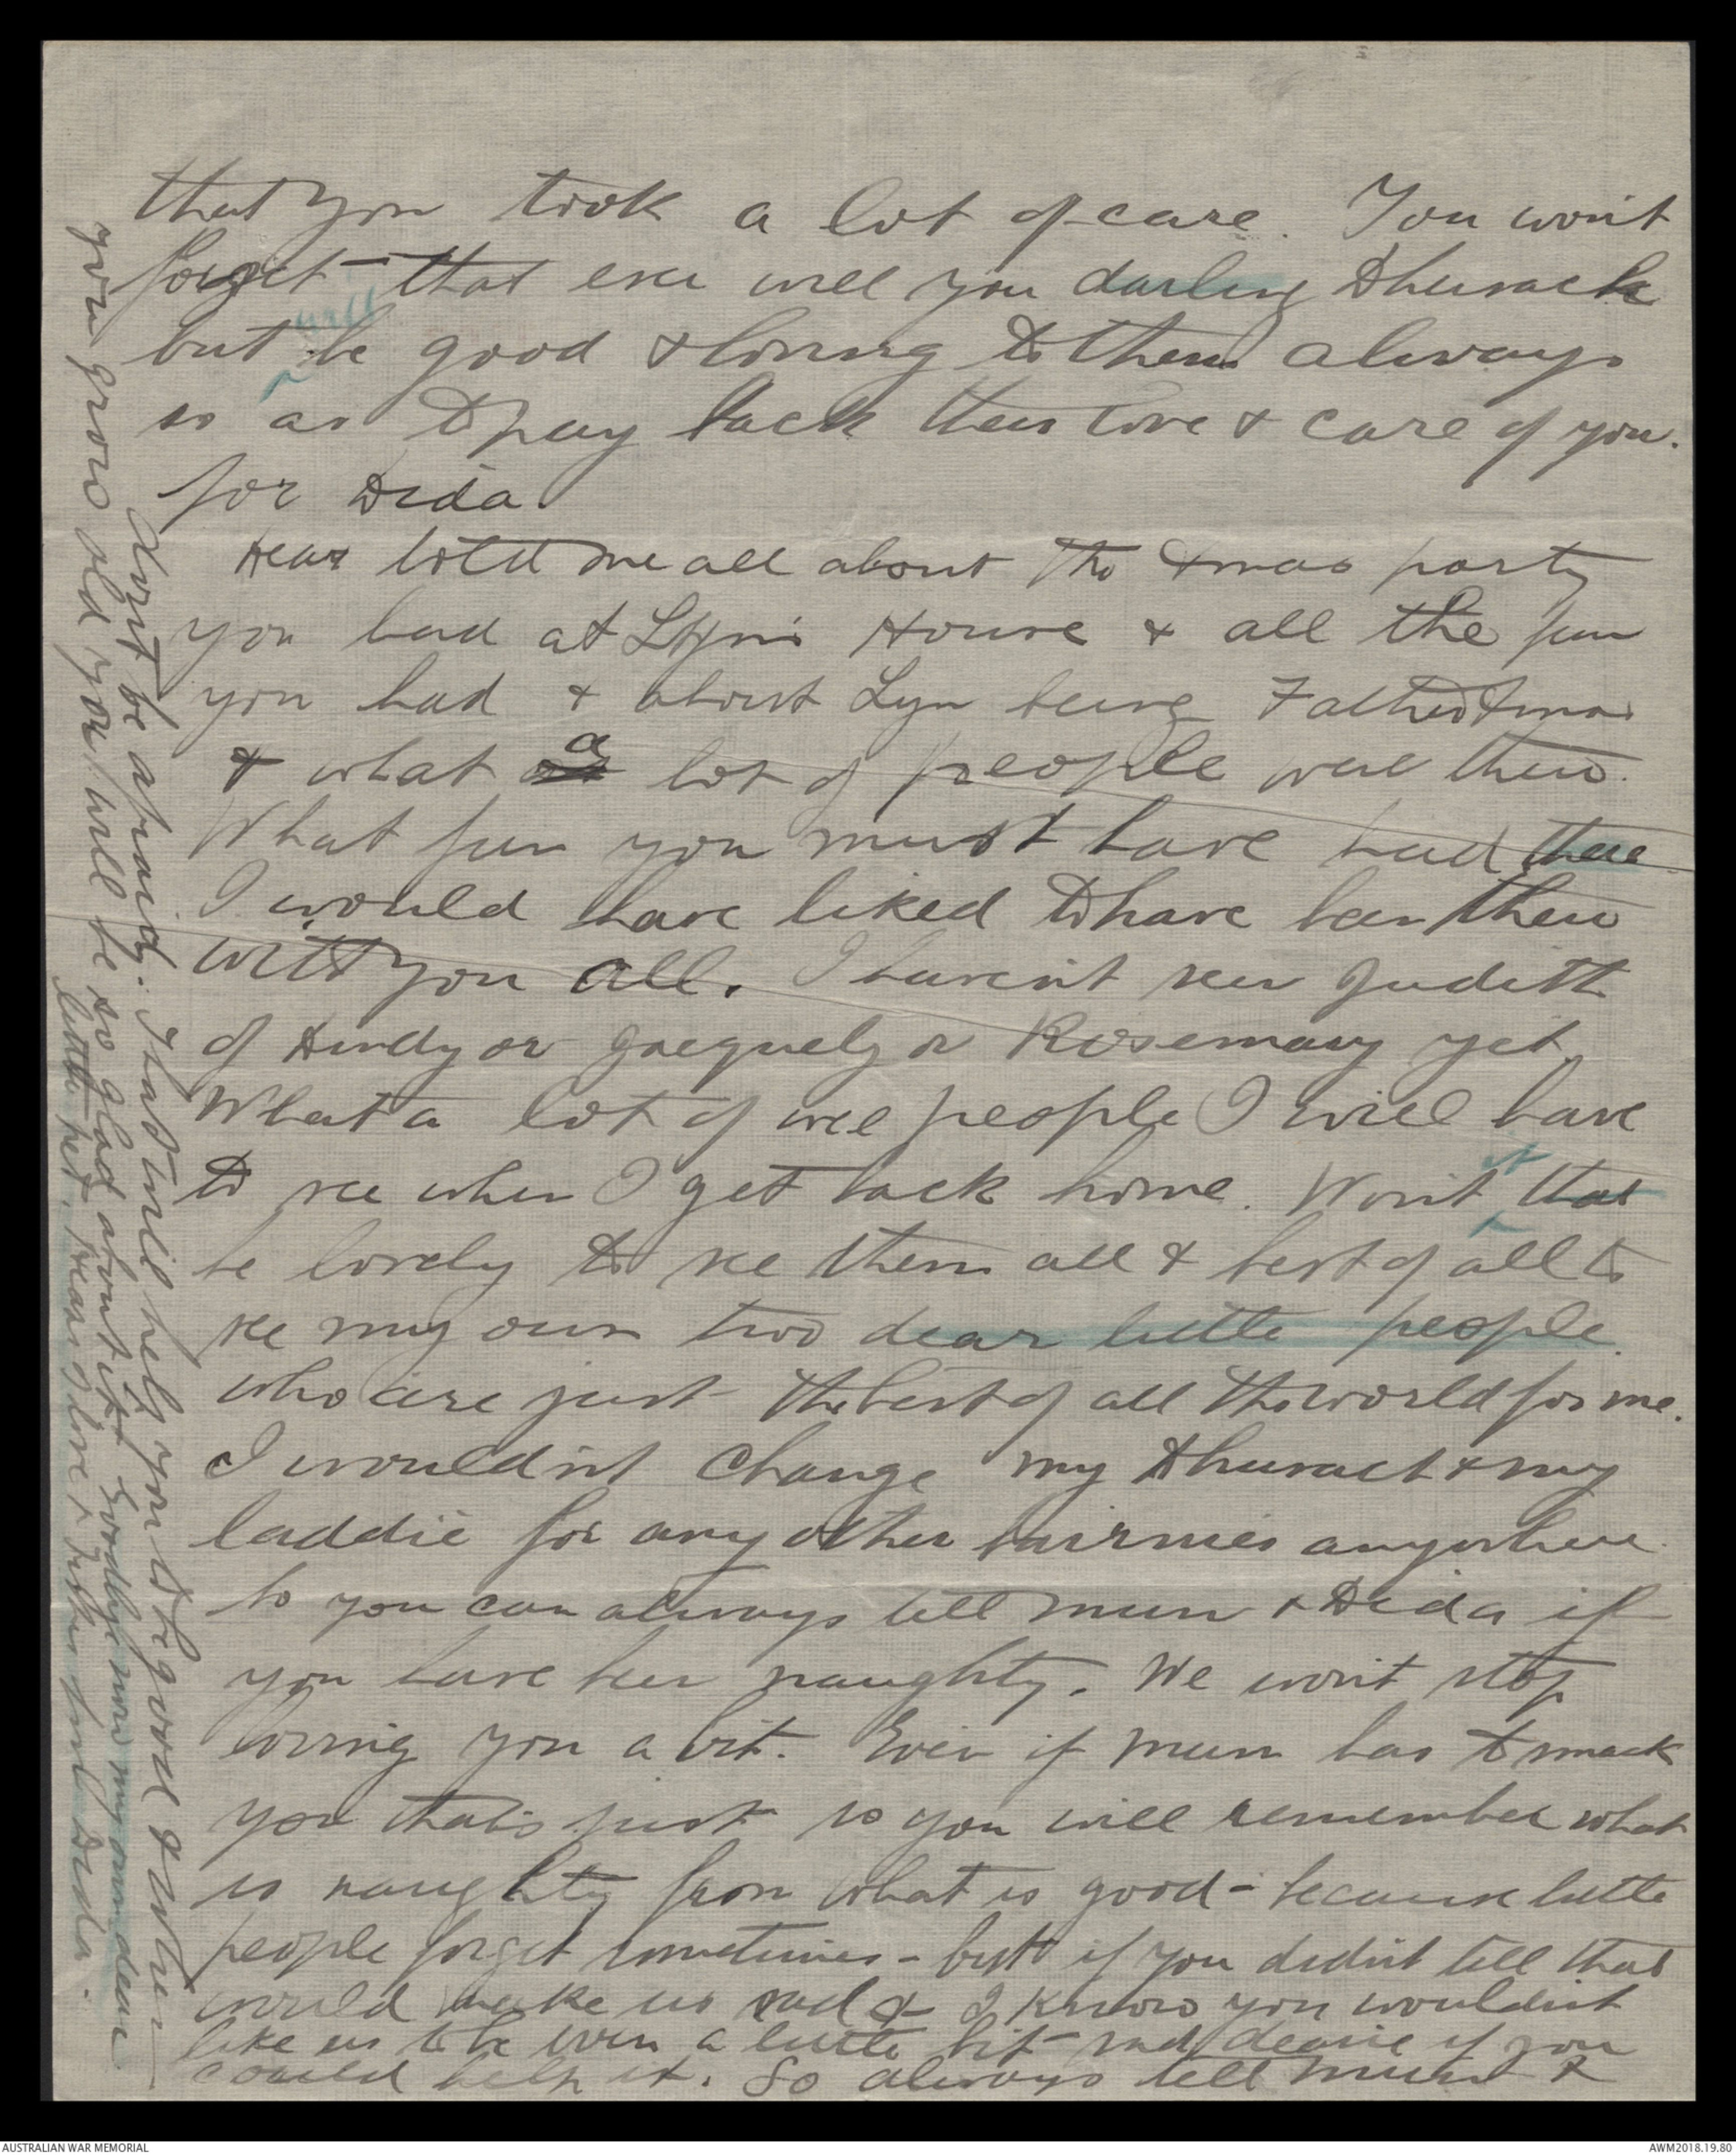 that you took a lot of care. You won't
forget - that ever will you darling Dhurack
but will be good & loving to them always
so as to pay back their love & care of you.
for Dida.
Dear told me all about the Xmas party
you had at Lyn's House & all the fun
you had & about Lyn being Father Xmas
& what a lot of people were there.
What fun you must have had there
I would have liked to have been there
with you all. I haven't seen Judith
or or Rosemary yet.
What a lot of wee people I will have
to see when I get back home. Won't it that
be lovely to see them all & best of all to
see my own two dear little people
who are just the best of all the world for me.
I wouldn't change my Dhurack & my
laddie for any other bairnies anywhere
so you can always tell mum & Dida if
you have been naughty. We won't stop
loving you a bit. Even if mum has to smack
you that's just so you will remember what
is naughty from what is good - because little
people forget sometimes - but if you didn't tell that
would make us sad & I know you wouldn't
like us to be even a little bit sad dearie if you
could help it. So always tell mum &
don't be afraid. That will help you to be good & when
you grow old you will be so glad about it. Goodbye now my own dear
little pet. Heaps love & kisses from Dida.
AUSTRALIAN WAR MEMORIAL
AWM2018.19.80